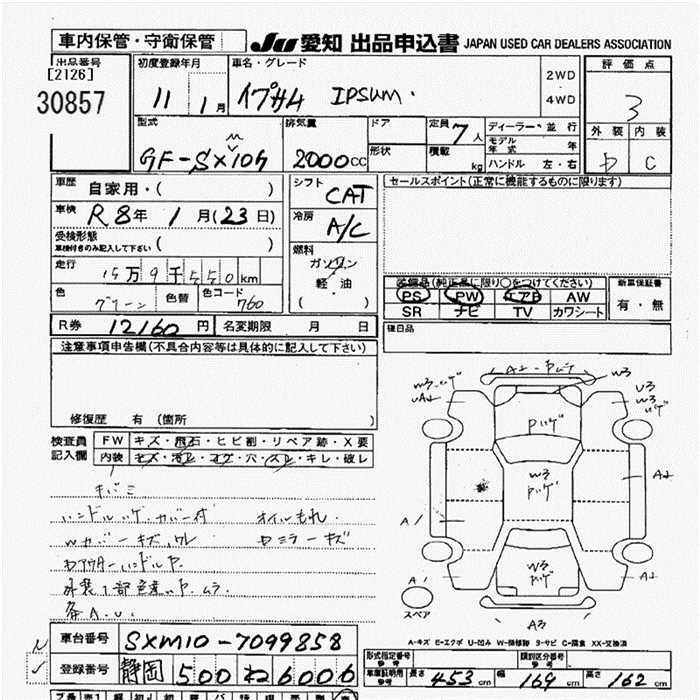 車内保管・守衛保管
JU 愛知 出品申込書 JAPAN USED CAR DEALERS ASSOCIATION
出品番号
[2126]
30857
初度登録年月
11 1月
車名・グレード
イプサム IPSUM
2WD
4WD
評価点
3
型式
GF-SXM10G
排気量
2000cc
ドア
形状
定員 7人
積載 kg
ディーラー・並行
モデル年式 年
ハンドル 左・右
外装 内装
C
車歴 自家用・( )
車検 R8年 1月(23日)
受検形態
車検付きのみ記入して下さい ( )
走行 万9千550km
色 グリーン 色替 色コード 760
シフト CAT
冷房 A/C
燃料
ガソリン
軽・油
( )
セールスポイント(正常に機能するものに限ります)
装備品(純正品に限り○をつけてください)
PS PW エアB AW
SR ナビ TV カワシート
新車保証書
有・無
R券 12160円 名変期限 月 日
後日品
注意事項申告欄(不具合内容等は具体的に記入して下さい)
修復歴 有(箇所 )
検査員記入欄
FW キズ・飛石・ヒビ割・リペア跡・X要
内装 キズ・汚レ・コゲ・穴・スレ・キレ・破レ
キバミ
ハンドルハゲ・カバー付 オイルもれ
Wカバーキズ,ワレ
ミラーキズ
外装1部色違い P.ムラ
各A.U.
車台番号 SXM10-7099858
登録番号 静岡 500 ね 6006
W3
U3
W3
Pハゲ
W3
Pハゲ
A2
A1
W3
Pハゲ
A1
A2
スペア
A3
A-キズ E-エクボ U-凹み W-補修跡 S-サビ C-腐食 XX-交換済
形式指定番号
参考
類別区分番号
参考
車庫証明用
参考
長さ 453cm 幅 169cm 高さ 162cm